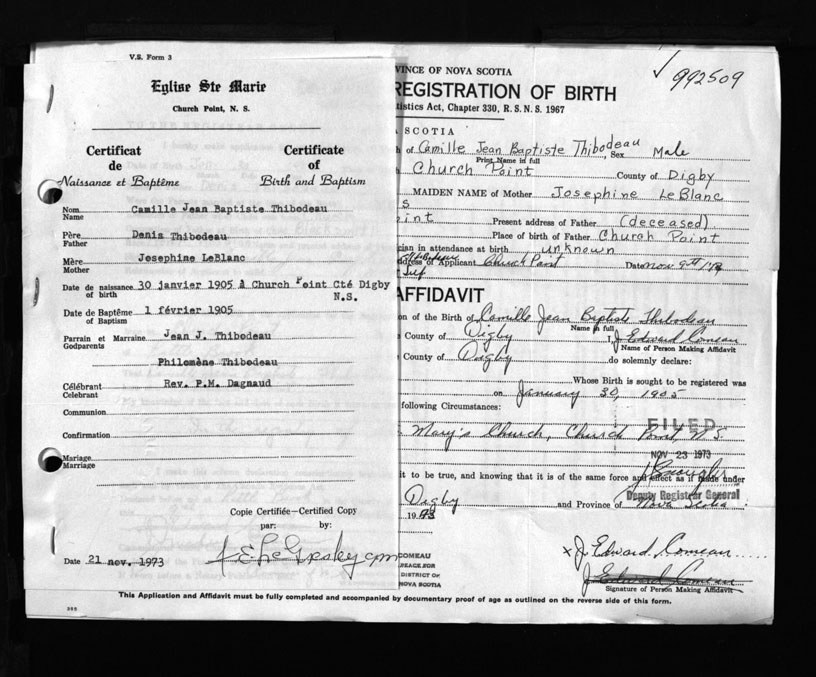 V.S. Form 3
Eglise Ste Marie
Church Point, N. S.
Certificat Certificate
de of
Naissance et Baptême Birth and Baptism
Nom Camille Jean Baptiste Thibodeau
Name
Père Denis Thibodeau
Father
Mère Josephine LeBlanc
Mother
Date de naissance 30 janvier 1905 à Church Point Cté Digby
of birth N.S.
Date de Baptême 1 février 1905
of Baptism
Parrain et Marraine Jean J. Thibodeau
Godparents
Philomène Thibodeau
Célébrant Rev. P.M. Dagnaud
Celebrant
Communion
Confirmation
Mariage
Marriage
Copie Certifiée—Certified Copy
par: by:
Date 21 nov. 1973
√ 992509
VINCE OF NOVA SCOTIA
REGISTRATION OF BIRTH
tistics Act, Chapter 330, R. S. N. S. 1967
A SCOTIA
of Camille Jean Baptiste Thibodeau, Sex Male
Print Name in full
Church Point County of Digby
MAIDEN NAME of Mother Josephine LeBlanc
s
oint Present address of Father (deceased)
Place of birth of Father Church Point
cian in attendance at birth unknown
ddress of Applicant Church Point Date Nov 9th
Self
AFFIDAVIT
on of the Birth of Camille Jean Baptiste Thibodeau
Name in full
County of Digby I, J. Edward Comeau
Name of Person Making Affidavit
County of Digby do solemnly declare:
Whose Birth is sought to be registered was
on January 30, 1905
following Circumstances:
FILED
Mary's Church, Church Point, N.S.
NOV 23 1973
it to be true, and knowing that it is of the same force and effect as if made under
Deputy Registrar General
Digby and Province of Nova Scotia
1973
x J. Edward Comeau
COMEAU
J. Edward Comeau
DISTRICT OF
NOVA SCOTIA
Signature of Person Making Affidavit
This Application and Affidavit must be fully completed and accompanied by documentary proof of age as outlined on the reverse side of this form.